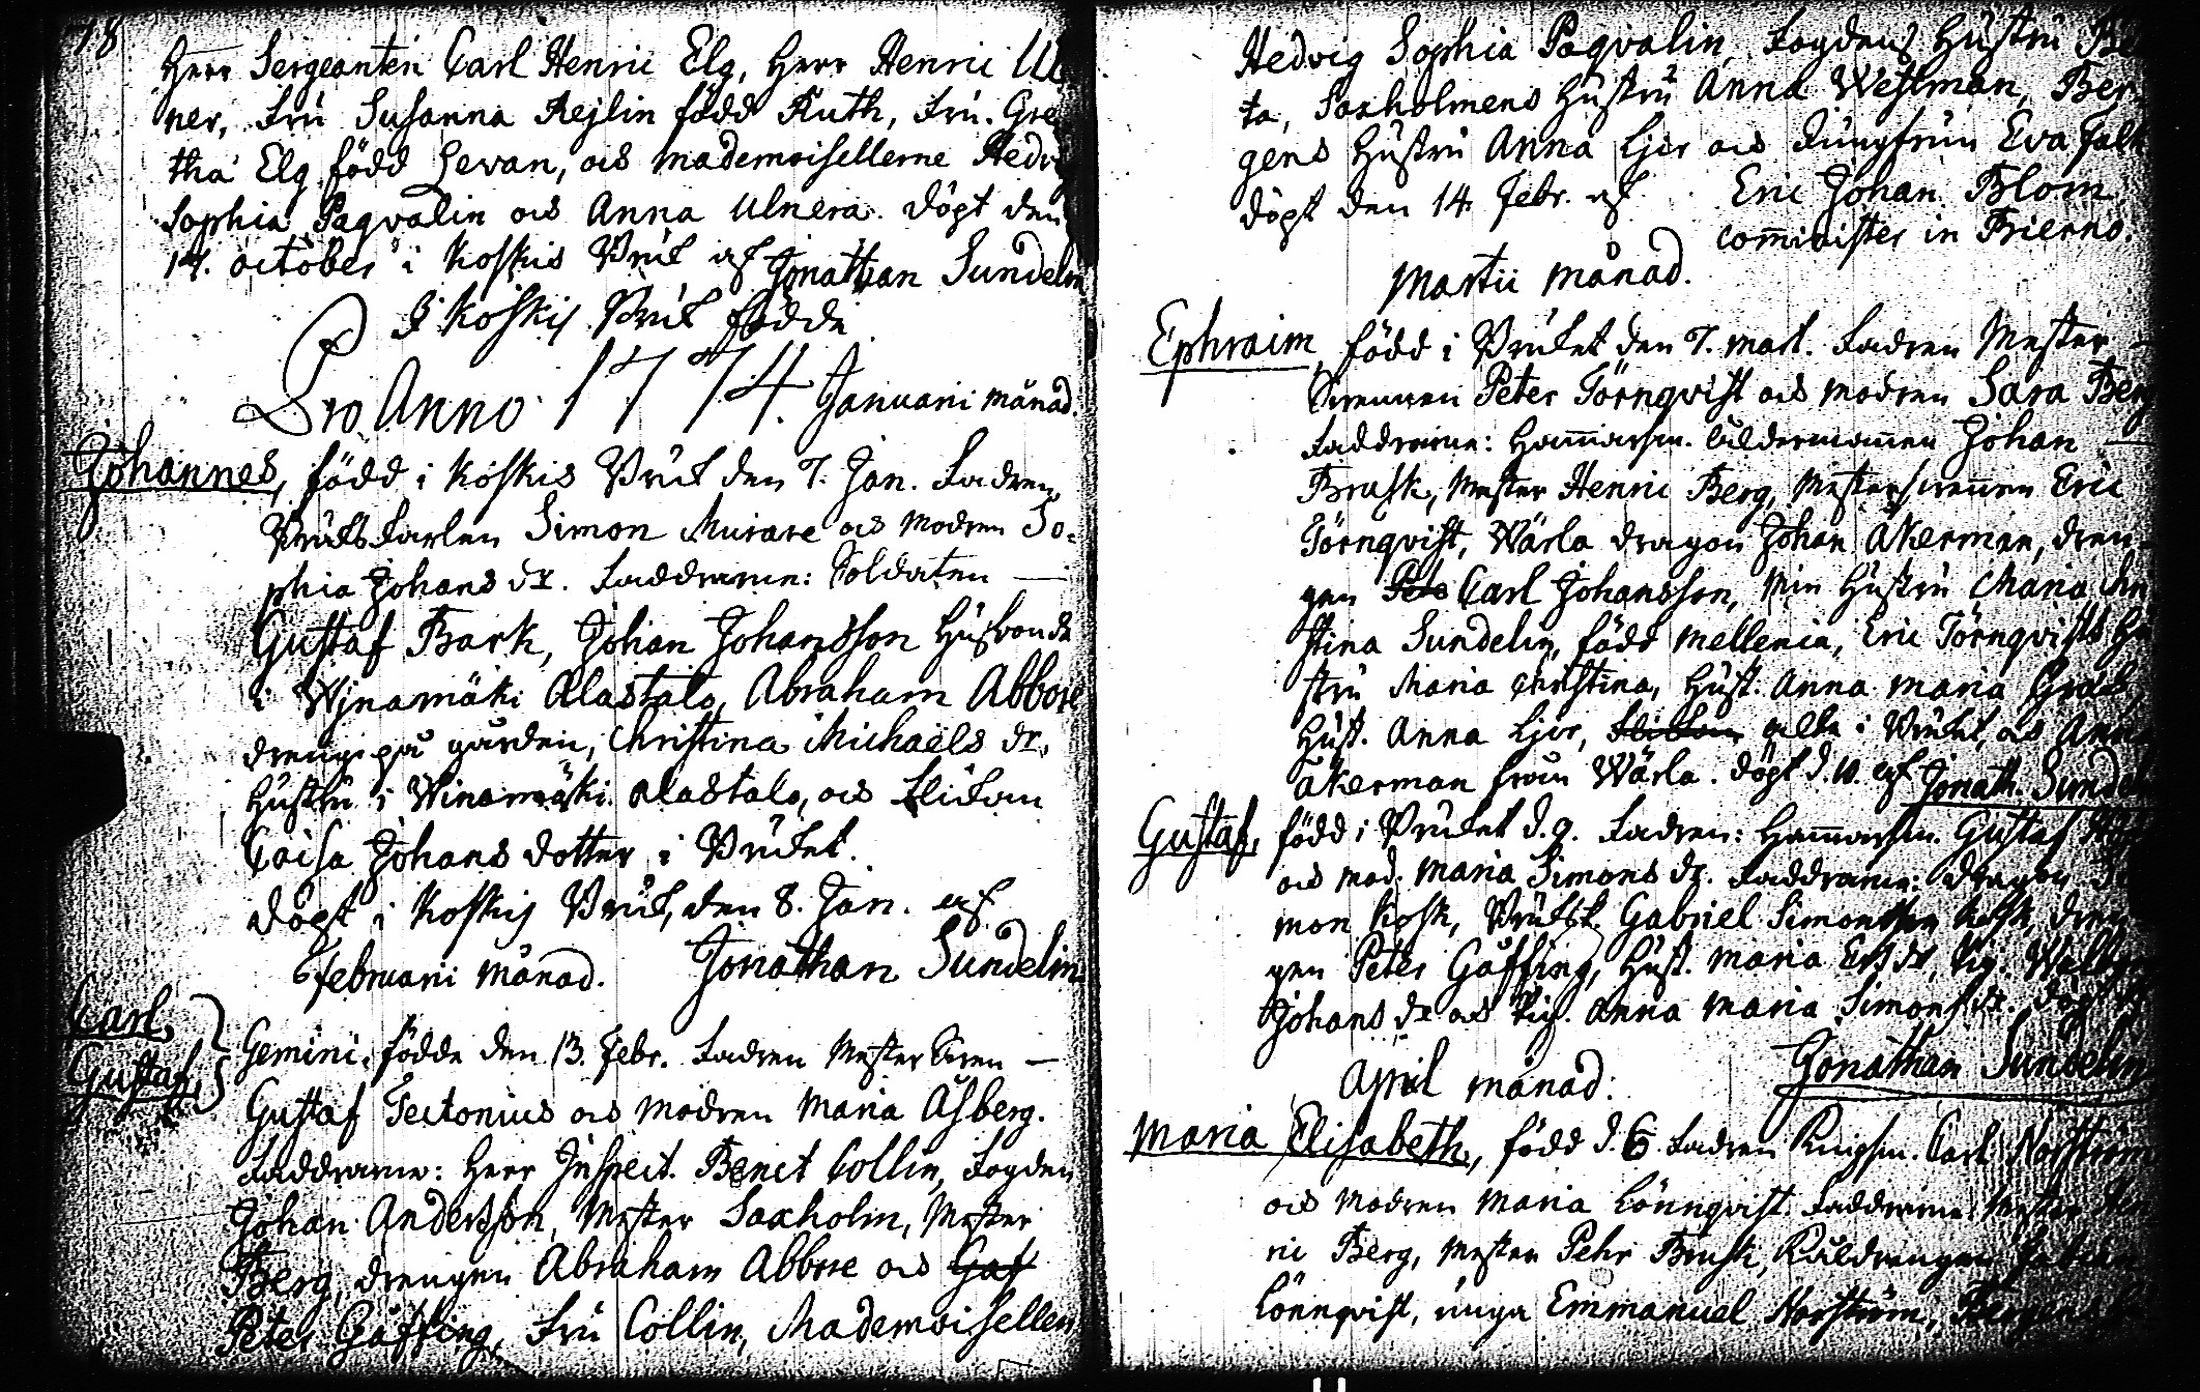 18
Herr Sergeanten Carl Henric Elg, Herr Henric Ul
ner, Fru Susanna Rejlin född Ruth, Fru. Gre
tha Elg född Levan, och Mademoisellerne Hedv
Sophia Paqvalin och Anna Ulnera. döpt den
14. october i Koskis Bruk af Jonathan Sundelin
I Koskis Bruk födde
Pro Anno 1774. Januarii månad.
Johannes, född i Koskis Bruk den 7. Jan. Fadren
Bruks Karlen Simon Murare och Modren So-
phia Johans dr. Faddrarne: Soldaten
Gustaf Bark, Johan Johansson Husbonde
i Wjnamäki Alastalo, Abraham Abbore
dreng på gården, Christina Michaëls dr.
Hustru i Winamäki Alastalo, och Flickan
Caisa Johans dotter i Bruket.
döpt i Koskis Bruk, den 8. Jan. af
Februarii Månad. Jonathan Sundelin
Carl,
Gustaf, Gemini, födde den 13. Febr. Fadren Mester Sven
Gustaf Tectonius och Modren Maria Åsberg.
Faddrarne: Herr Inspect. Benct Collin, Fogden
Johan Andersson, Mester Saxholm, Mester
Berg, drengen Abraham Abbore och Gaf
Peter Gäffing, Fru Collin, Mademoisellen
Hedvig Sophia Paqvalin, Fogdens Hustru Be
ta, Saxholmens Hustru Anna Westman, Ber
gens Hustru Anna Ljer och Jungfrun Eva Falk
döpt den 14. Febr. af Eric Johan Blom
Com̄inister in Bierno.
Martii Månad.
Ephraim, född i Bruket den 7. Mart. Fadren Mester
Svennen Peter Törnqvist och Modren Sara Berg
Faddrarne: Ham̄arsm. åldermannen Johan
Brusk, Mester Henric Berg, Mestersvennen Eric
Törnqvist, Wärla dragon Johan Åkerman, dren-
gen Pete Carl Johansson, Min Hustru Maria Chri
stina Sundelin, född Mellenia, Eric Törnqvists Hu
stru Maria Christina, Hust. Anna Maria
Hust. Anna Ljer, i Bruket, och Anna
Åkerman från Wärla. döpt d. 10. af Jonath. Sundel
Gustaf, född i Bruket d. 9. Fadren: Ham̄arsm. Gustaf
och Mod. Maria Simons dr. Faddrarne: Dragon Si
mon Kosk, Bruksk. Gabriel Simonsson Kosk, dren
gen Peter Gäffing, Hust. Maria Ers dr, Pig.
Johans dr och Pig. Anna Maria Simons dr. döpt
April Månad: Jonathan Sundelin
Maria Elisabeth, född d. 6. Fadren Knipsm. Carl Norström
och Modren Maria Lönnqvist. Faddrarne: Mester Hen
ric Berg, Mester Pehr Brusk, Kåldrengen
Lönnqvist, unga Emmanuel Norström,